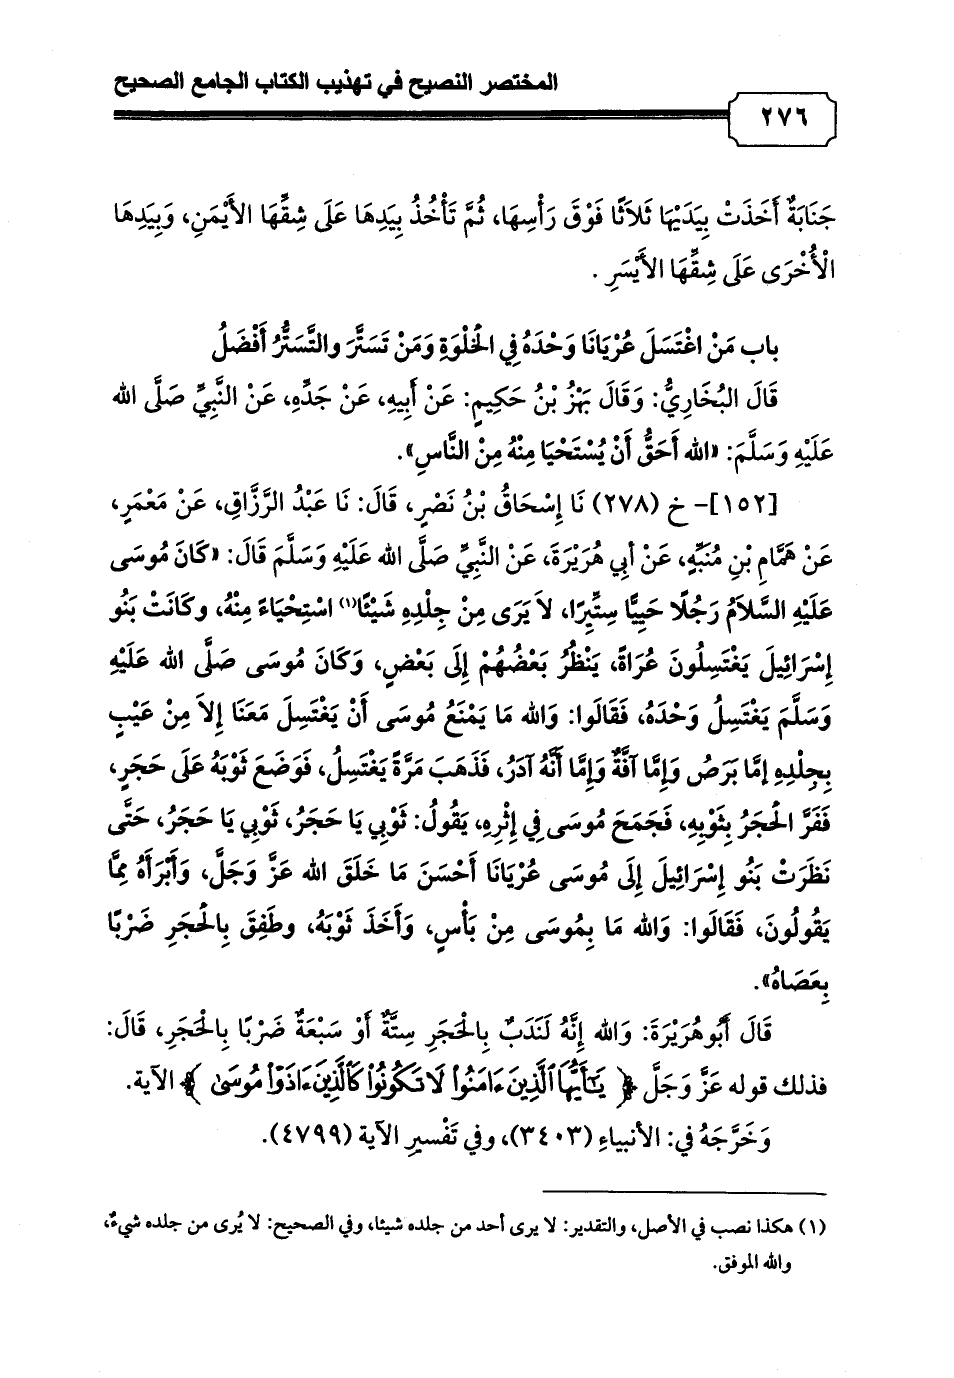 المختصر النصيح في تهذيب الكتاب الجامع الصحيح
٢٧٦
جَنَابَةٌ أَخَذَتْ بِيَدَيْهَا ثَلاَثًا فَوْقَ رَأْسِهَا، ثُمَّ تَأْخُذُ بِيَدِهَا عَلَى شِقِّهَا الأَيْمَنِ، وَبِيَدِهَا
الْأُخْرَى عَلَى شِقِّهَا الأَيْسَرِ .
باب مَنْ اغْتَسَلَ عُرْيَانَا وَحْدَهُ فِي الخَلْوَةِ وَمَنْ تَسَتَّرَ والتَّسَتُّرُ أَفْضَلُ
قَالَ البُخَارِيُّ: وَقَالَ بَهْزُ بْنُ حَكِيمٍ: عَنْ أَبِيهِ، عَنْ جَدِّهِ، عَنْ النَّبِيِّ صَلَّى الله
عَلَيْهِ وَسَلَّمَ: «الله أَحَقُّ أَنْ يُسْتَحْيَا مِنْهُ مِنْ النَّاسِ».
[١٥٢]- خ (٢٧٨) نَا إِسْحَاقُ بْنُ نَصْرٍ، قَالَ: نَا عَبْدُ الرَّزَّاقِ، عَنْ مَعْمَرٍ،
عَنْ هَمَّامِ بْنِ مُنَبِّهٍ، عَنْ أبِي هُرَيْرَةَ، عَنْ النَّبِيِّ صَلَّى الله عَلَيْهِ وَسَلَّمَ قَالَ: «كَانَ مُوسَى
عَلَيْهِ السَّلاَمُ رَجُلًا حَيِيًّا سِتِّيرًا، لاَ يَرَى مِنْ جِلْدِهِ شَيْئًا(١) اسْتِحْيَاءً مِنْهُ، وكَانَتْ بَنُو
إِسْرَائِيلَ يَغْتَسِلُونَ عُرَاةً، يَنْظُرُ بَعْضُهُمْ إِلَى بَعْضٍ، وَكَانَ مُوسَى صَلَّى الله عَلَيْهِ
وَسَلَّمَ يَغْتَسِلُ وَحْدَهُ، فَقَالُوا: وَالله مَا يَمْنَعُ مُوسَى أَنْ يَغْتَسِلَ مَعَنَا إِلاَ مِنْ عَيْبٍ
بِجِلْدِهِ إِمَّا بَرَصٌ وَإِمَّا آفَّةٌ وَإِمَّا أَنَّهُ آدَرُ، فَذَهَبَ مَرَّةً يَغْتَسِلُ، فَوَضَعَ ثَوْبَهُ عَلَى حَجَرٍ،
فَفَرَّ الْحَجَرُ بِثَوْبِهِ، فَجَمَحَ مُوسَى فِي إِثْرِهِ، يَقُولُ: ثَوْبِي يَا حَجَرُ، ثَوْبِي يَا حَجَرُ، حَتَّى
نَظَرَتْ بَنُو إِسْرَائِيلَ إِلَى مُوسَى عُرْيَانَا أَحْسَنَ مَا خَلَقَ الله عَزَّ وَجَلَّ، وَأَبْرَأَهُ مِمَّا
يَقُولُونَ، فَقَالُوا: وَالله مَا بِمُوسَى مِنْ بَأْسٍ، وَأَخَذَ ثَوْبَهُ، وطَفِقَ بِالْحَجَرِ ضَرْبًا
بِعَصَاهُ».
قَالَ أَبُو هُرَيْرَةَ: وَالله إِنَّهُ لَنَدَبٌ بِالْحَجَرِ سِتَّةٌ أَوْ سَبْعَةٌ ضَرْبًا بِالْحَجَرِ، قَالَ:
فذلك قوله عَزَّ وَجَلَّ ﴿ يَٰٓأَيُّهَا ٱلَّذِينَ ءَامَنُوا۟ لَا تَكُونُوا۟ كَٱلَّذِينَ ءَاذَوْا۟ مُوسَىٰ ﴾ الآية.
وَخَرَّجَهُ في: الأنبياءِ (٣٤٠٣)، وفي تَفْسيرِ الآية (٤٧٩٩).
(١) هكذا نصب في الأصل، والتقدير: لا يرى أحد من جلده شيئا، وفي الصحيح: لا يُرى من جلده شيءٌ،
والله الموفق.